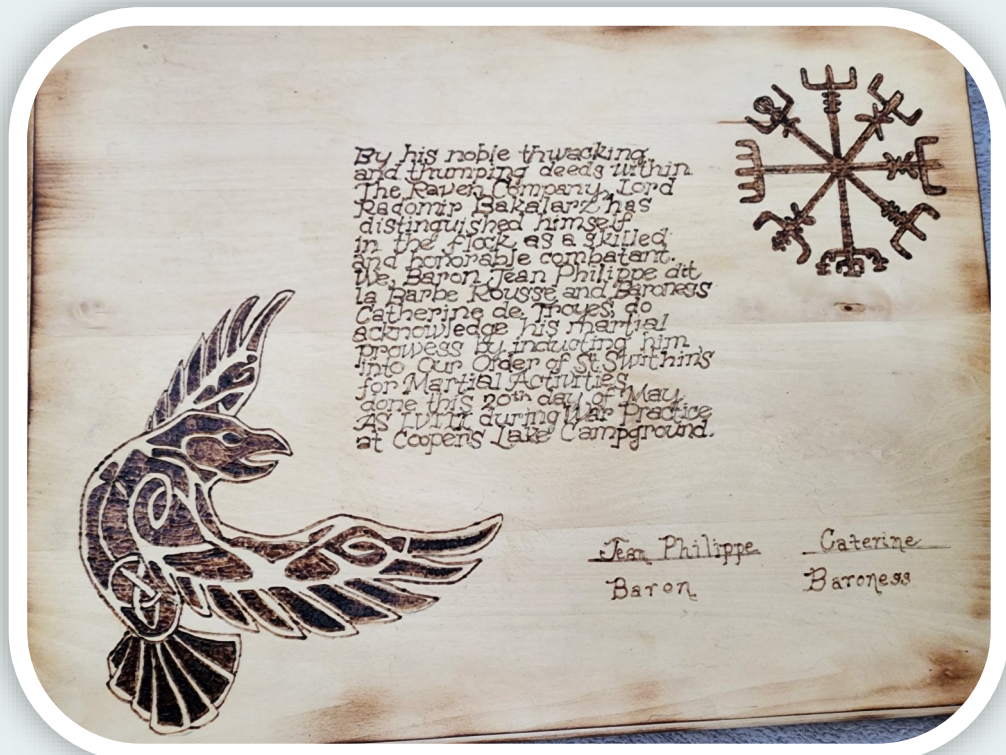 By his noble thwacking
and thumping deeds within
The Raven Company, Lord
Radomir Bakalarz has
distinguished himself
in the flock as a skilled
and honorable combatant.
We, Baron Jean Philippe dit
la Barbe Rousse and Baroness
Catherine de Troyes, do
acknowledge his martial
prowess by inducting him
into Our Order of St. Swithin's
for Martial Activities
done this 20th day of May
AS LVIII during War Practice
at Cooper's Lake Campground.
Jean Philippe Caterine
Baron Baroness